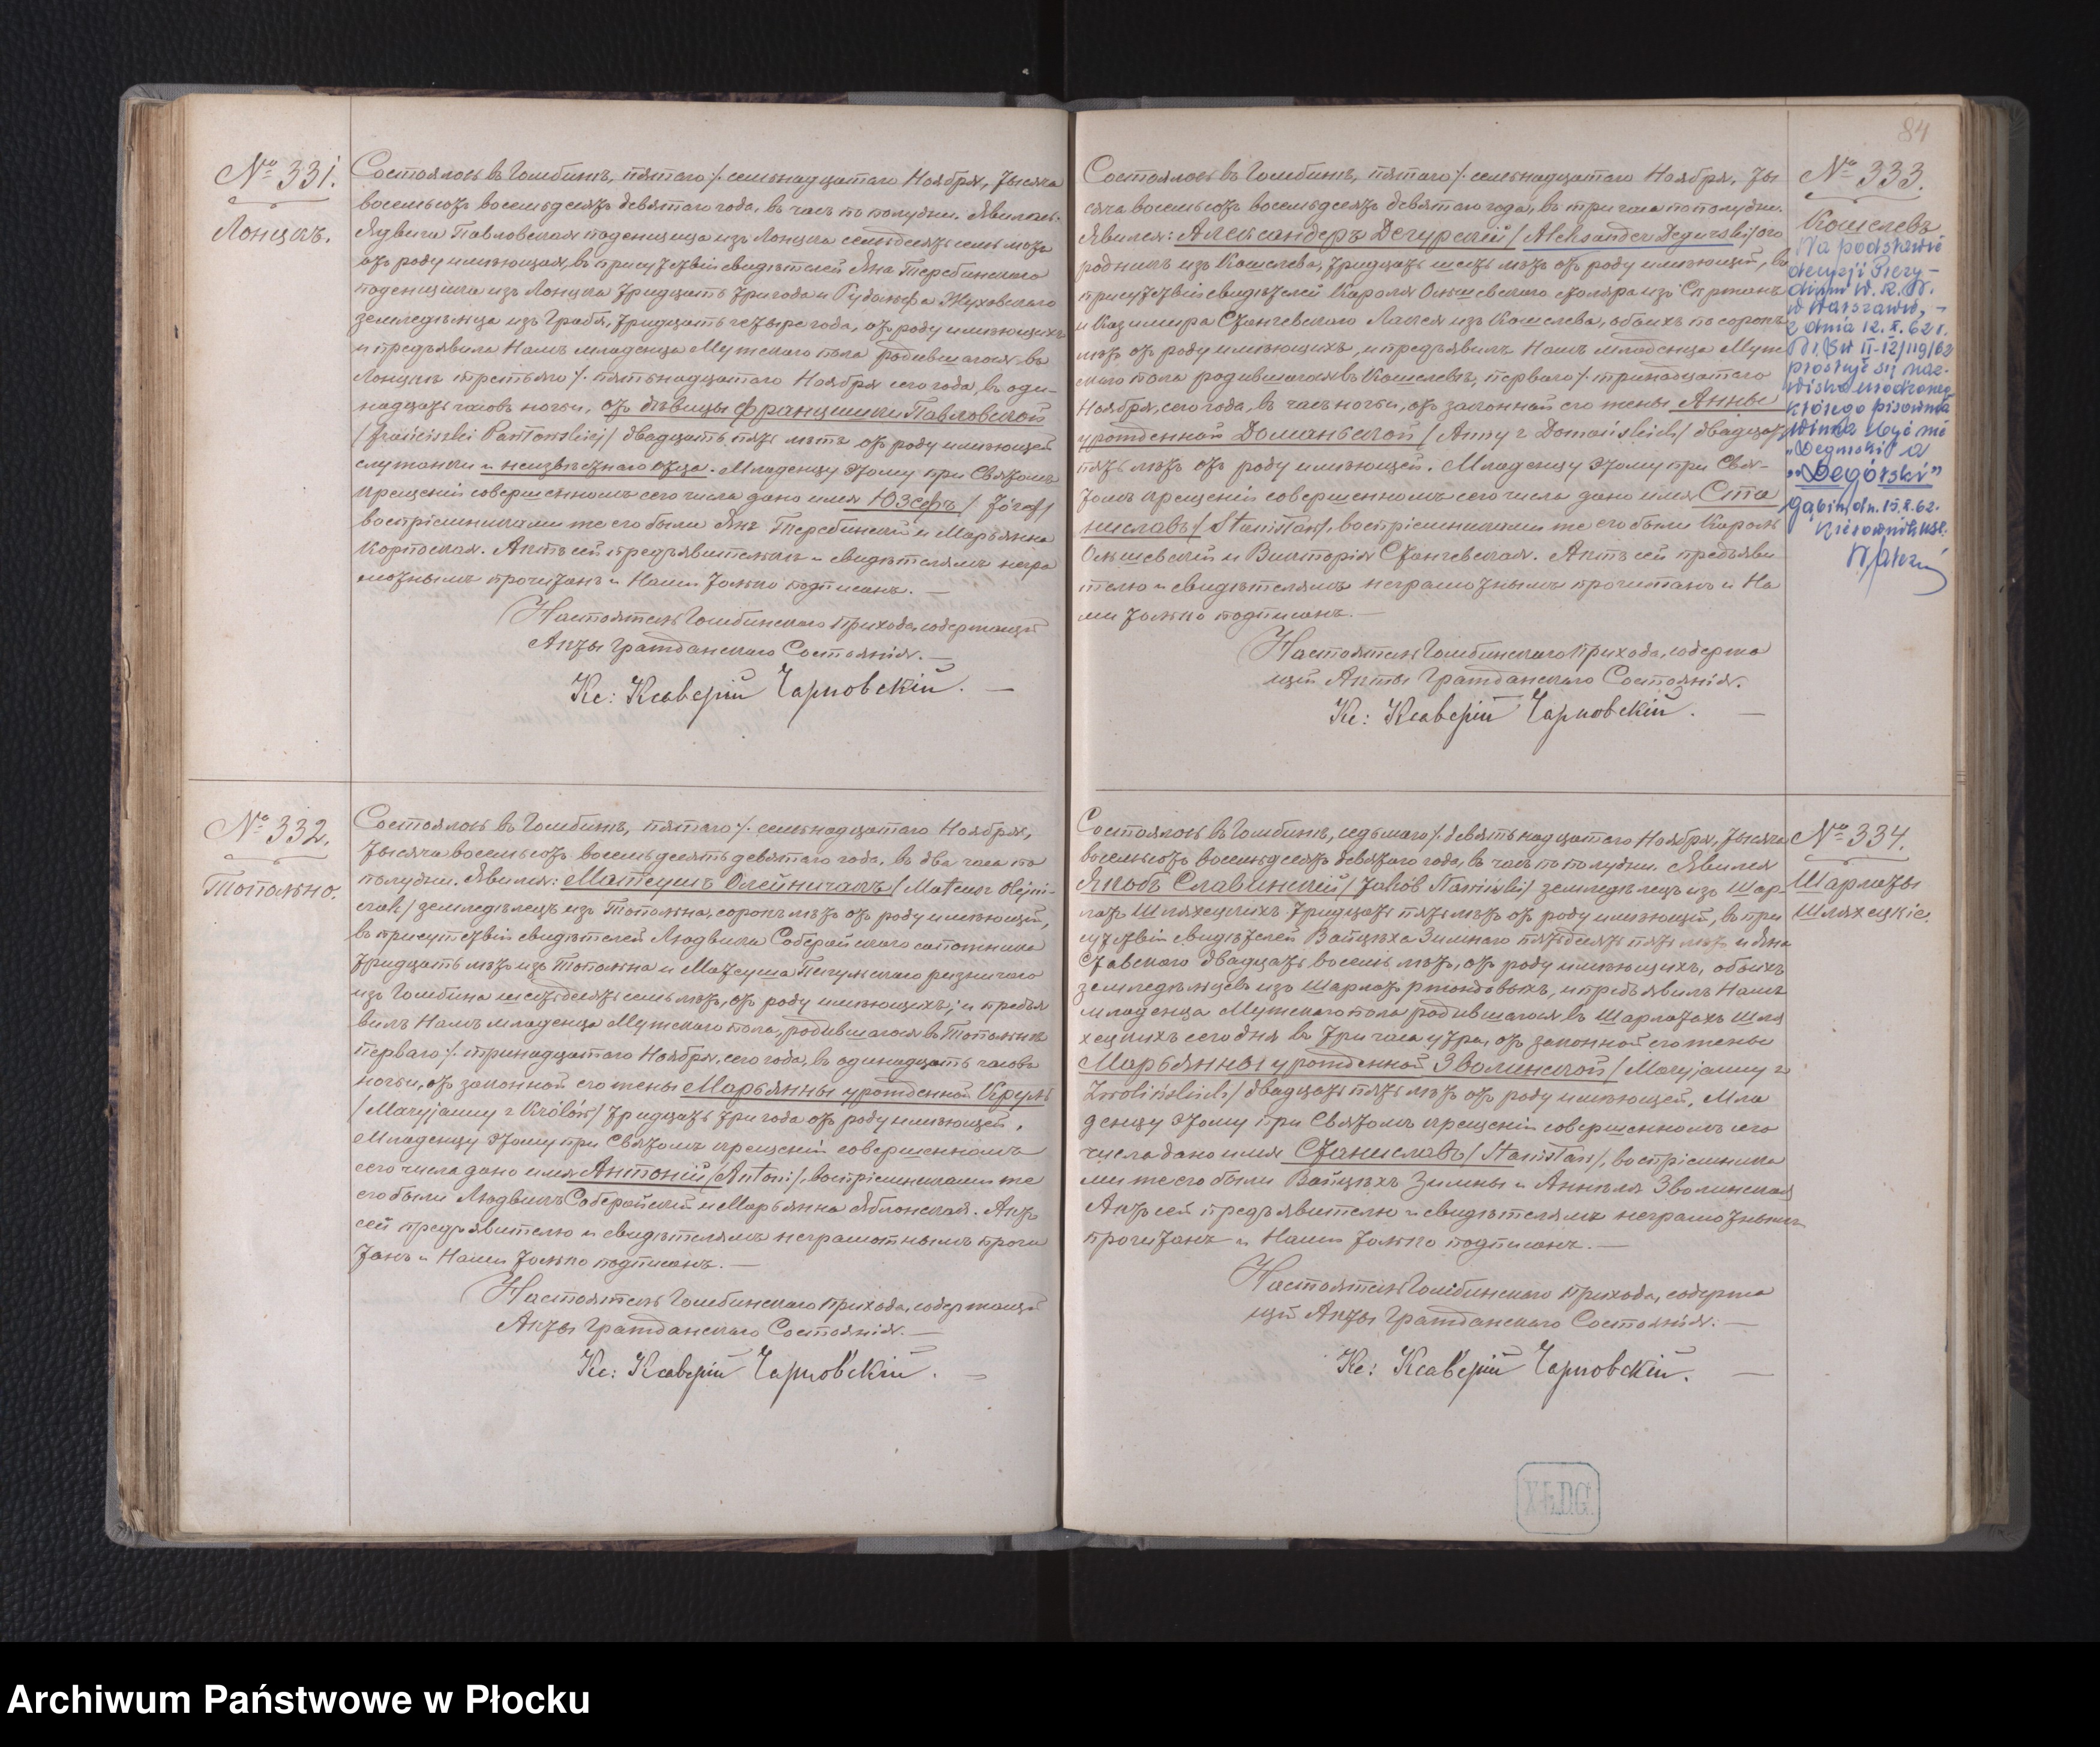 № 331.
Лонцкъ.
Состоялось въ Гомбинѣ, пятаго /. семьнадцатаго Ноября, тысяча
восемьсотъ восемьдесятъ девятаго года, въ часъ по полудни. Явилась:
Ядвига Павловская поденщица изъ Лонцка семьдесятъ семь лѣтъ
отъ роду имѣющая, въ присутствіи свидѣтелей Яна Теребинскаго
поденщика изъ Лонцка тридцать три года и Рудольфа Жуховскаго
земледѣльца изъ Грабя, тридцать четыре года, отъ роду имѣющихъ
и предъявила Намъ младенца Мужескаго пола родившагося въ
Лонцкѣ третьяго /. пятьнадцатаго Ноября сего года, въ оди-
надцать часовъ ночи, отъ дѣвицы Францишки Павловской
/Franciszki Pawłowskiej/ двадцать пять лѣтъ отъ роду имѣющей
служанки и неизвѣстнаго отца. Младенцу этому при Святомъ
крещеніи совершенномъ сего числа дано имя Юзефъ /Józef/
воспріемниками же его были Янъ Теребинскій и Марьянна
Карпоская. Актъ сей предъявительницѣ и свидѣтелямъ негра
мотнымъ прочитанъ и Нами только подписанъ. —
Настоятель Гомбинскаго Прихода, содержащій
Акты Гражданскаго Состоянія. —
Кс: Ксаверій Чарновскій. —
№ 332.
Топольно.
Состоялось въ Гомбинѣ, пятаго /. семьнадцатаго Ноября,
тысяча восемьсотъ восемьдесятъ девятаго года, въ два часа по
полудни. Явился: Матеушъ Олейничакъ /Mateusz Olejni-
czak/ земледѣлецъ изъ Топольна, сорокъ лѣтъ отъ роду имѣющій,
въ присутствіи свидѣтелей Людвика Соберайскаго сапожника
тридцать лѣтъ изъ Топольна и Матеуша Пекульскаго ризничаго
изъ Гомбина шестьдесятъ семь лѣтъ, отъ роду имѣющихъ; и предъя
вилъ Намъ младенца Мужескаго пола, родившагося въ Топольнѣ
перваго /. тринадцатаго Ноября, сего года, въ одинадцать часовъ
ночи, отъ законной его жены Марьянны урожденной Круль
/Maryjanny z Królów/ тридцать три года отъ роду имѣющей.
Младенцу этому при Святомъ крещеніи совершенномъ
сего числа дано имя Антоній /Antoni/, воспріемниками же
его были Людвикъ Соберайскій и Марьянна Яблонская. Актъ
сей предъявителю и свидѣтелямъ неграмотнымъ прочи
танъ и Нами только подписанъ. —
Настоятель Гомбинскаго Прихода, содержащій
Акты Гражданскаго Состоянія. —
Кс: Ксаверій Чарновскій. —
84
№ 333.
Кошелевъ
Состоялось въ Гомбинѣ, пятаго /. семьнадцатаго Ноября, ты
сяча восемьсотъ восемьдесятъ девятаго года, въ три часа по полудни.
Явился: Александеръ Дегурскій /Aleksander Degurski/ ого
родникъ изъ Кошелева, тридцать шесть лѣтъ отъ роду имѣющій, въ
присутствіи свидѣтелей Кароля Ольшевскаго столяра изъ Скржанъ
и Казимира Станчевскаго Лакея изъ Кошелева, обоихъ по сорокъ
лѣтъ отъ роду имѣющихъ, и предъявилъ Намъ младенца Муже
скаго пола родившагося въ Кошелевѣ, перваго /. тринадцатаго
Ноября, сего года, въ часъ ночи, отъ законной его жены Анны
урожденной Доманьской /Anny z Domańskich/ двадцать
пять лѣтъ отъ роду имѣющей. Младенцу этому при Свя-
томъ крещеніи совершенномъ сего числа дано имя Ста
ниславъ /Stanisław/, воспріемниками же его были Кароль
Ольшевскій и Викторія Станчевская. Актъ сей предъяви
телю и свидѣтелямъ неграмотнымъ прочитанъ и На
ми только подписанъ. —
Настоятель Гомбинскаго Прихода, содержа
щій Акты Гражданскаго Состоянія.
Кс: Ксаверій Чарновскій. —
Na podstawie
decyzji Prezy-
dium W. R. N.
w Warszawie, -
z dnia 12. X. 62 r.
prostuje się naz-
wisko
którego pisownia
winna być nie
"Degurski" a
"Degórski"
Gąbin, dn. 15. X. 62.
Kierownik USC.
№ 334.
Шарлаты
Шляхецкіе.
Состоялось въ Гомбинѣ, седьмаго /. девятьнадцатаго Ноября, тысяча
восемьсотъ восемьдесятъ девятаго года, въ часъ по полудни. Явился
Якобъ Славинскій /Jakób Sławiński/ земледѣлецъ изъ Шар-
латъ Шляхецкихъ тридцать пять лѣтъ отъ роду имѣющій, въ при
сутствіи свидѣтелей Войцѣха Зимнаго пятьдесятъ пять лѣтъ и Яна
Ставскаго двадцать восемь лѣтъ, отъ роду имѣющихъ, обоихъ
земледѣльцевъ изъ Шарлатъ ржондовыхъ, и предъявилъ Намъ
младенца Мужескаго пола родившагося въ Шарлатахъ Шля
хецкихъ сего дня въ три часа утра, отъ законной его жены
Марьянны урожденной Зволинской /Maryjanny z
Zwolińskich/ двадцать пять лѣтъ отъ роду имѣющей. Мла
денцу этому при Святомъ крещеніи совершенномъ сего
числа дано имя Станиславъ /Stanisław/, воспріемника
ми же его были Войцѣхъ Зимны и Анъеля Зволинская
Актъ сей предъявителю и свидѣтелямъ неграмотнымъ
прочитанъ и Нами только подписанъ. —
Настоятель Гомбинскаго Прихода, содержа
щій Акты Гражданскаго Состоянія. —
Кс: Ксаверій Чарновскій. —
X.Ł.D.G.
Archiwum Państwowe w Płocku